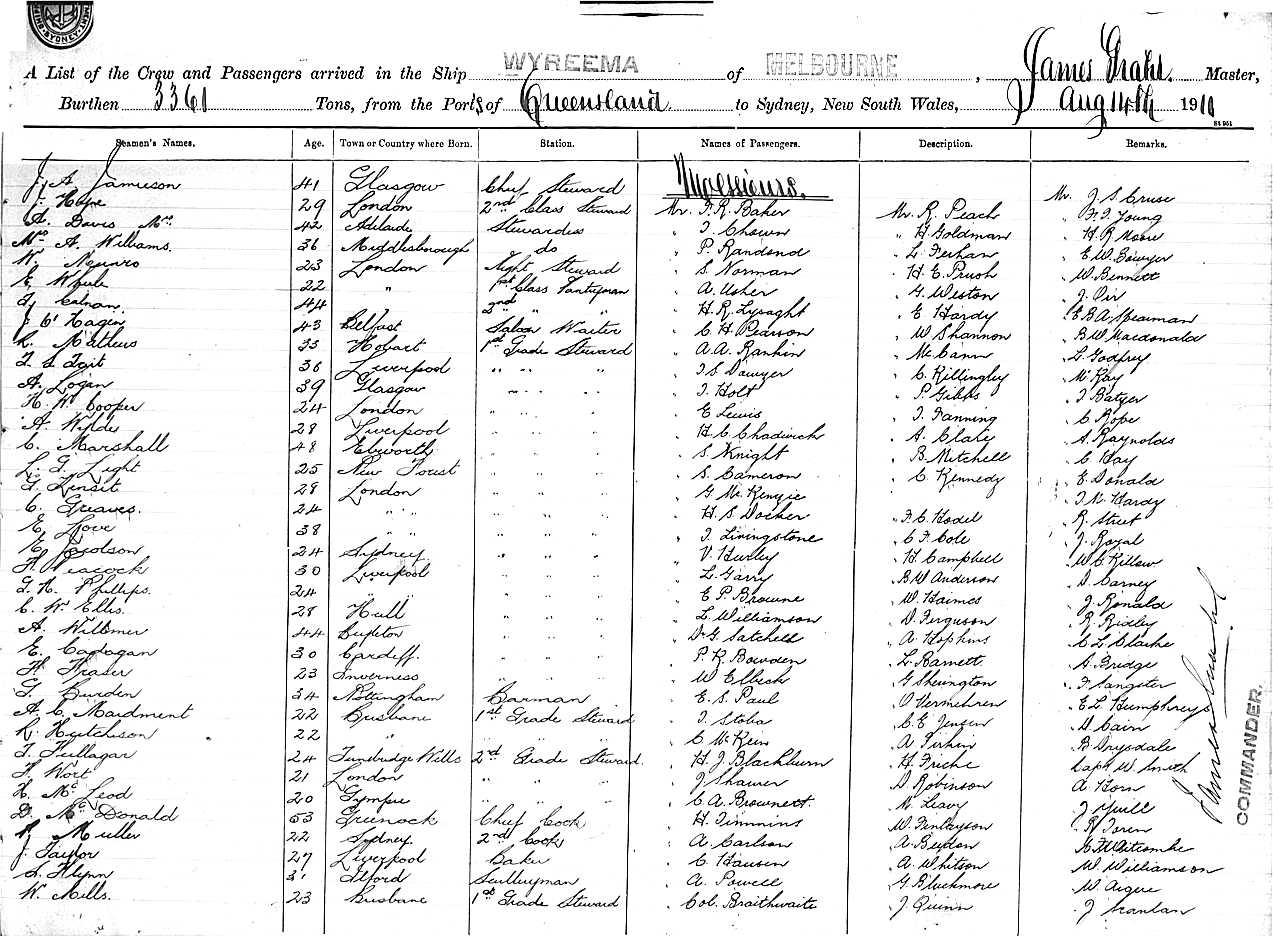 SYDNEY
A List of the Crew and Passengers arrived in the Ship WYREEMA of MELBOURNE, James Master,
Burthen 3361 Tons, from the Ports of Queensland to Sydney, New South Wales, Aug 14th 1910
Seamen's Names. Age. Town or Country where Born. Station. Names of Passengers. Description. Remarks.
Messieurs.
J. A. Jamieson 41 Glasgow Chief Steward Mr. J. S. Cruse
J. Hope 29 London 2nd Class Steward Mr. F. R. Baker Mr. R. Peach " F. J. Young
A. Davis Mrs 42 Adelaide Stewardess " J. Chown " H. Goldman " H. R. Moore
Mrs A. Williams. 36 Middlesbrough do " P. Randond " L. Feehan " E. W. Bowyer
W. Munro 23 London Night Steward " S. Norman " H. E. Prush " W. Bennett
E. 22 " 1st Class Pantryman " A. Usher " G. Weston " J. Oir
J. Calnan. 44 2nd " " " H. R. Lysaght " E. Hardy " E. B. A.
J. O'Hagen 43 Belfast Saloon Waiter " C. H. Pearson " W. Shannon " B. W. Macdonald
R. Mathers 33 Hobart 1st Grade Steward " A. A. Rankin " McCann " L. Godfrey
J. S. Tait 36 Liverpool " " " " J. S. Sawyer " C. Killingley " McKay
A. Logan 39 Glasgow " " " " J. Holt " P. Gibbs " J. Batger
H. W. Cooper 24 London " " " " E. Lewis " J. Fanning " C. Rope
A. Wylde 28 Liverpool " " " " H. C. Chadwick " A. Claty " S. Raynolds
C. Marshall 48 Ebworth " " " " S. Knight " B. Mitchell " C. Hay
L. G. Light 25 New Forest " " " " S. Cameron " C. Kennedy " E. Donald
G. Tensit 29 London " " " " G. McKenzie " J. N. Hardy
C. Greaves. 24 " " " " " " H. S. Docker " F. C. Hodel " R. Street
E. Love 38 " " " " " " J. Livingstone " C. F. Cole " J. Royal
E. Jacolson 24 Sydney " " " " V. Hurley " H. Campbell " W. C. Killow
F. Peacock 30 Liverpool " " " " L. Garry " B. W. Anderson " D. Carney
G. H. Phillips. 24 " " " " " E. P. Browne " W. Haimes " J. Ronald
C. W. Ellis. 28 Hull " " " " L. Williamson " D. Ferguson " R. Ridley
A. Willmer 44 " " " " Dr. G. Satchell " A. Hopkins " C. L. Clarke
E. Cadagan 30 Cardiff " " " " P. R. Bowden " L. Barnett " S. Bridge
H. Fraser 23 Inverness " " " " W. Elbeck " G. Shevington " F. Sangster
G. Burden 34 Nottingham Barman " E. S. Paul " O. Vermehren " E. L. Humphreys
A. C. Maidment 22 Brisbane 1st Grade Steward " J. Stoba " C. E. Jensen " D. Cain
R. Hutchison 22 " " " " " C. McKein " A. Firkin " B. Drysdale
J. Fullagar 24 Tunbridge Wells 2nd Grade Steward " H. J. Blackburn " H. Friche " Capt. W. Smith
F. Wort 21 London " " " " J. Shawer " D. Robinson " A. Horn
H. McLeod 20 Gympie " " " " C. A. Brownett " M. Leavy " J. Yuill
D. McDonald 53 Greenock Chief Cock " H. Timmins " W. Finlayson " R. Toren
R. Muller 22 Sydney 2nd Cook " A. Carlson " A. Beydon " H. Whitcombe
J. Taylor 27 Liverpool Baker " C. Hansen " A. Whitson " W. Williamson
L. Flynn 31 Ilford Scullryman " A. Powell " G. Bluckmore " W. Argue
W. Mills. 23 Brisbane 1st Grade Steward " Col. Braithwaite " J. Quinn " J. Scanlan
COMMANDER.